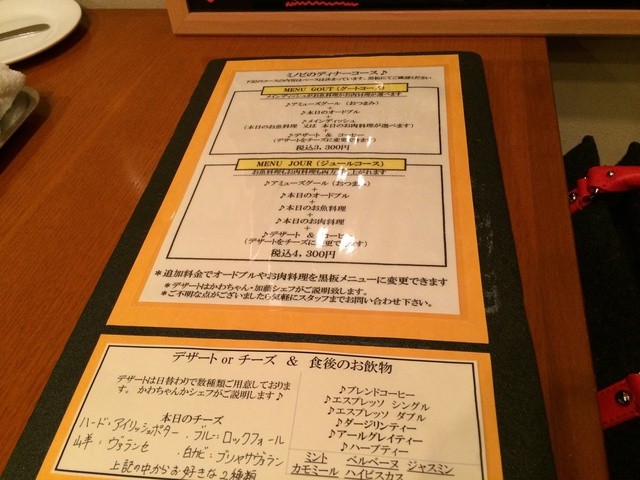 ミノビのディナーコース♪
下記のコースの内容はベースは決まっています。黒板にてご確認ください
MENU GOUT (グートコース)
メインディッシュがお魚料理かお肉料理が選べます
♪アミューズグール (おつまみ)
+
♪本日のオードブル
+
♪メインディッシュ
(本日のお魚料理 又は 本日のお肉料理が選べます)
+
♪デザート & コーヒー
(デザートをチーズに変更できます)
税込3,300円
MENU JOUR (ジュールコース)
お魚料理もお肉料理も両方 上がれます
♪アミューズグール (おつまみ)
+
♪本日のオードブル
+
♪本日のお魚料理
+
♪本日のお肉料理
+
♪デザート & コーヒー
(デザートをチーズに変更できます)
税込4,300円
*追加料金でオードブルやお肉料理を黒板メニューに変更できます
*デザートはかわちゃん・加藤シェフがご説明致します。
*ご不明な点がございましたら気軽にスタッフまでお問い合わせ下さい。
デザート or チーズ & 食後のお飲物
デザートは日替わりで数種類ご用意しておりま
す。かわちゃんかシェフがご説明します♪
本日のチーズ
ハード・アイリッシュポター ブルー:ロックフォール
山羊・ヴァランセ 白カビ・ブリヤサヴァラン
上記の中からお好きな2種類
♪ブレンドコーヒー
♪エスプレッソ シングル
♪エスプレッソ ダブル
♪ダージリンティー
♪アールグレイティー
♪ハーブティー
ミント ベルベーヌ ジャスミン
カモミール ハイビスカス